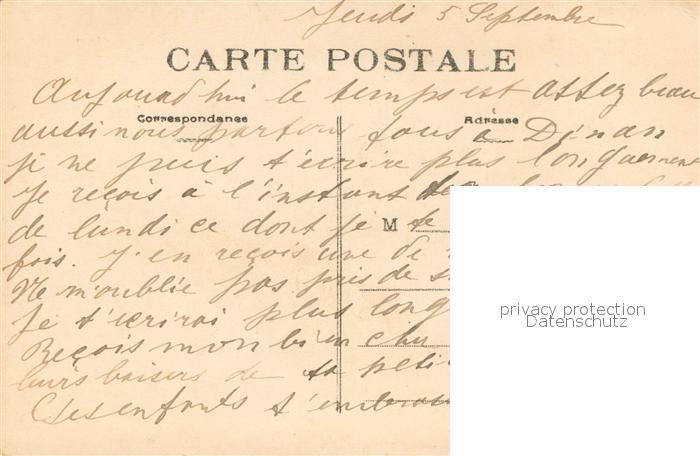 Jeudi 5 Septembre
CARTE POSTALE
Aujourd'hui le temps est assez beau
Correspondance
Adresse
aussi nous partons tous à Dinan
je ne puis t'écrire plus longuement
Je reçois à l'instant
de lundi ce dont je te
M
fois. J'en reçois une de
privacy protection
Datenschutz
Ne m'oublie pas près de
Je t'écrirai plus long
Reçois mon bien
leurs baisers de ta peti
Les enfants t'embrass